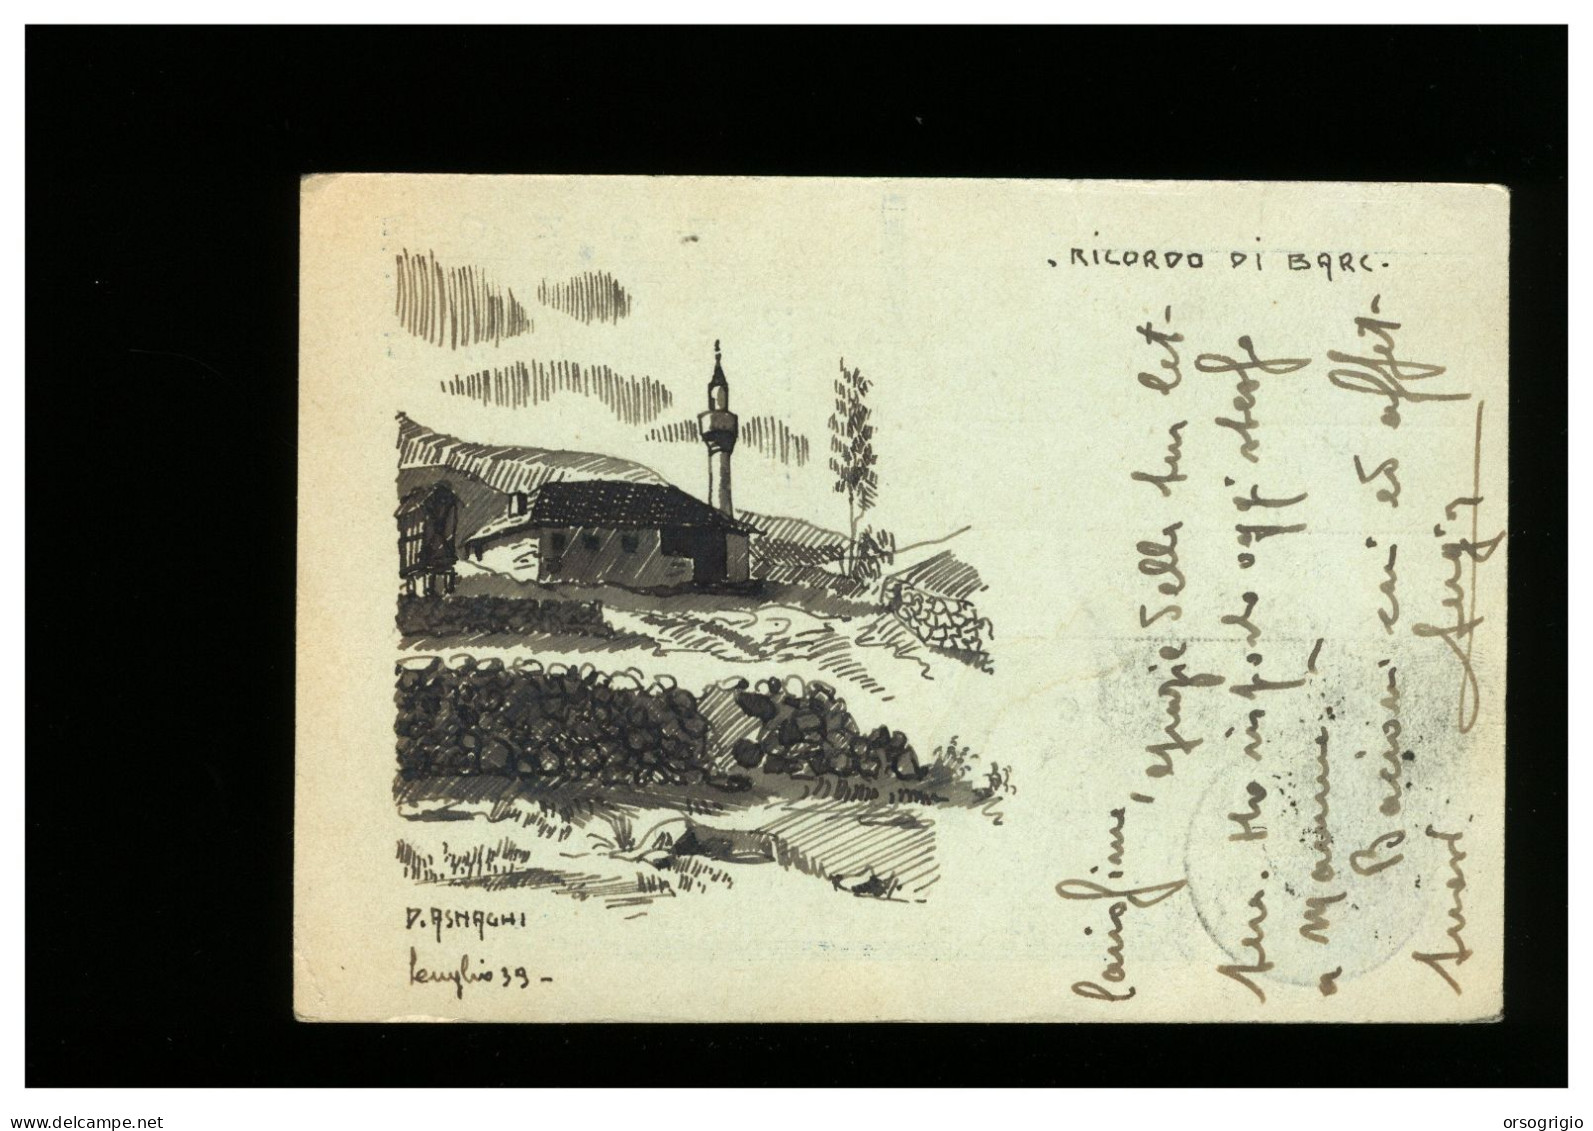 . RICORDO DI BARC.
D. ASNAGHI
Luglio 39 -
Carissime,
grazie della tua let-
tera. Ho risposto oggi stesso
a Mamma. -
Bacioni cari ed affet-
tuosi.
www.delcampe.net
orsogrigio